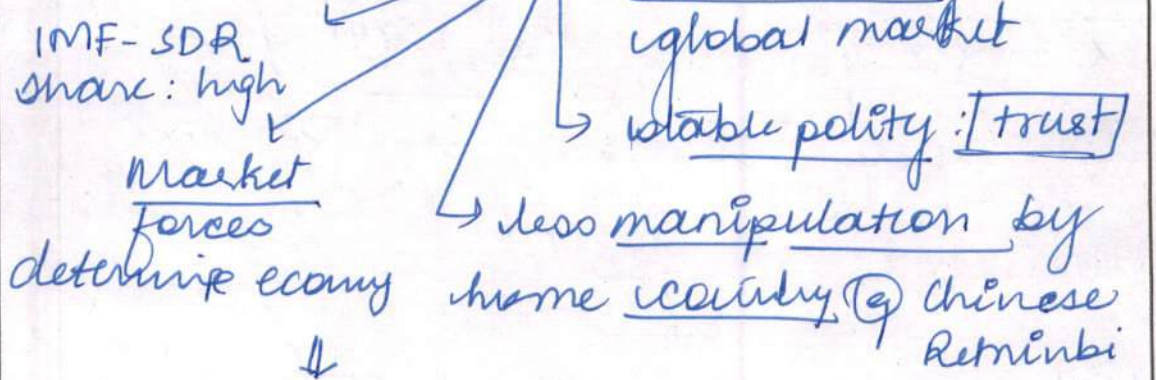 IMF-SDR
share: high
global market
stable polity : trust
Market
forces
determine ecomy
less manipulation by
home country eg Chinese
Reminbi